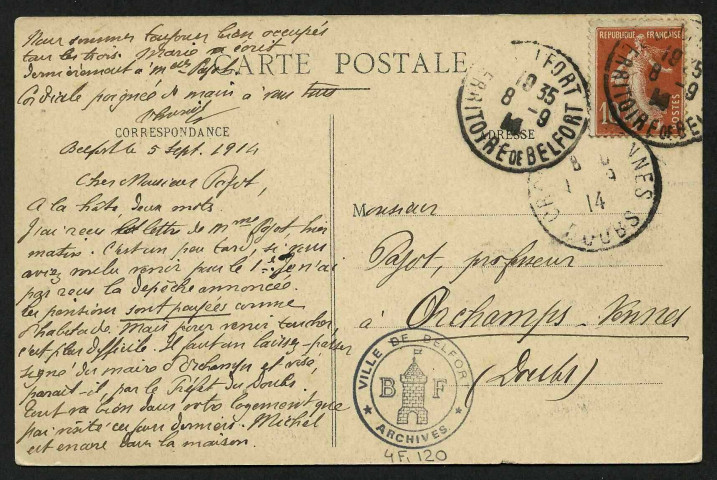 Nous sommes toujours bien occupés
tous les trois. Marie a écrit
dernièrement à Melle Pajot.
Cordiale poignée de main à vous tous
CARTE POSTALE
CORRESPONDANCE
ADRESSE
Belfort le 5 Sept. 1914
Cher Monsieur Pajot,
A la hâte, deux mots.
J'ai reçu la lettre de Mme Pajot, hier
matin. C'est un peu tard, si vous
aviez voulu venir pour le 1er. Je n'ai
pas reçu la dépêche annoncée.
Les pensions sont payées comme
d'habitude. Mais pour venir toucher,
c'est plus difficile. Il faut un laissez-passer
signé du maire d'Orchamps et visé,
parait-il par le Préfet du Doubs.
Tout va bien dans votre logement que
j'ai visité ces jours derniers. Michel
est encore dans la maison.
Monsieur
Pajot, professeur
à Orchamps-Vennes
(Doubs)
REPUBLIQUE FRANÇAISE
POSTES
BELFORT
18 35
8 - 9
TERRITOIRE DE BELFORT
18 35
8 - 9
TERRITOIRE DE BE
VENNES
8
9
14
DOUBS
VILLE DE BELFORT
B F
ARCHIVES
4Fi 120